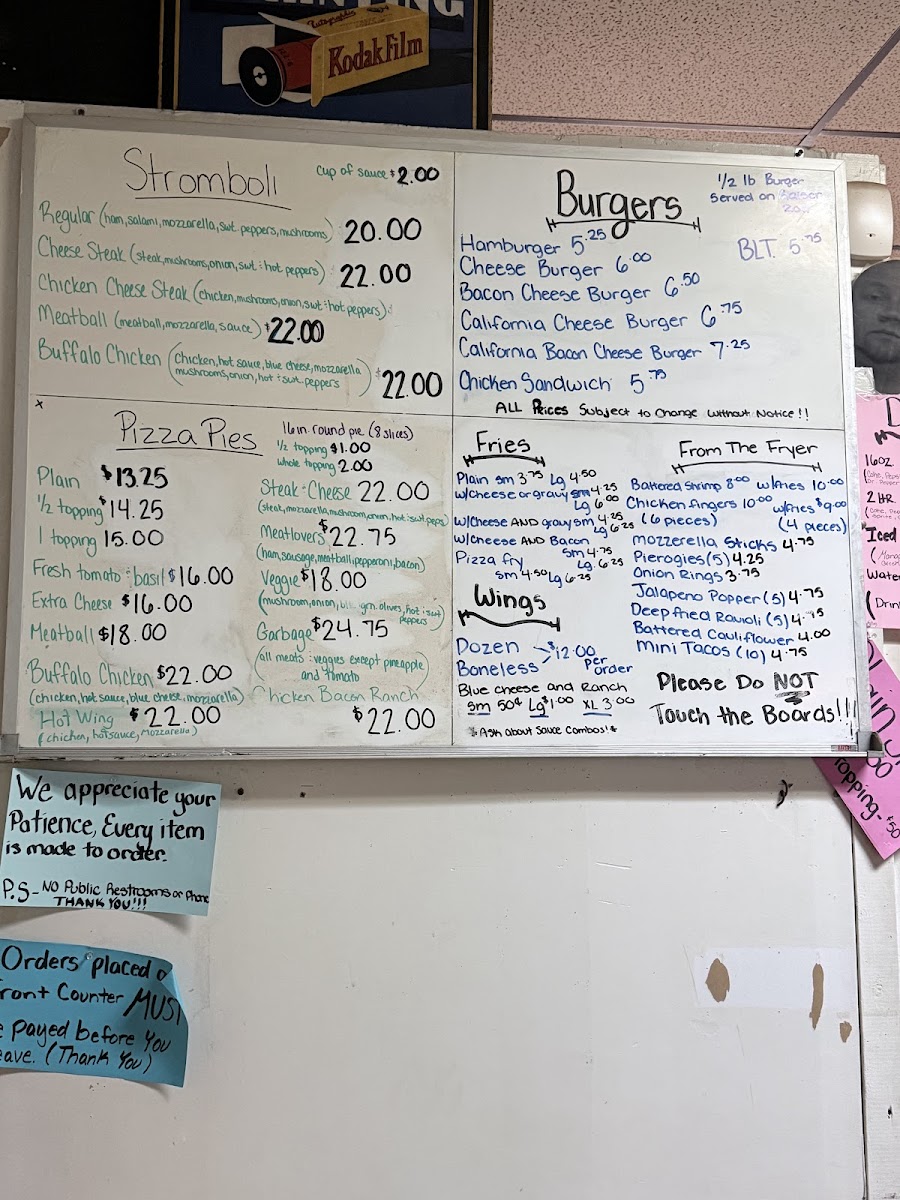 Autographic
Kodak Film
Stromboli
cup of sauce $2.00
Regular (ham, salami, mozzarella, swt. peppers, mushrooms) 20.00
Cheese Steak (steak, mushrooms, onion, swt : hot peppers) 22.00
Chicken Cheese Steak (chicken, mushrooms, onion, swt : hot peppers)
Meatball (meatball, mozzarella, sauce) $22.00
Buffalo Chicken (chicken, hot sauce, blue cheese, mozzarella
mushrooms, onion, hot : swt. peppers) $22.00
Burgers
1/2 lb Burger
Served on
Hamburger 5.25
BLT 5.75
Cheese Burger 6.00
Bacon Cheese Burger 6.50
California Cheese Burger 6.75
California Bacon Cheese Burger 7.25
Chicken Sandwich 5.75
ALL Prices Subject to Change Without Notice!!
x
Pizza Pies
16 in. round pie (8 slices)
1/2 topping $1.00
whole topping 2.00
Plain $13.25
1/2 topping $14.25
1 topping 15.00
Fresh tomato : basil $16.00
Extra Cheese $16.00
Meatball $18.00
Buffalo Chicken $22.00
(chicken, hot sauce, blue cheese, mozzarella)
Hot Wing $22.00
(chicken, hot sauce, mozzarella)
Steak-Cheese 22.00
(steak, mozzarella, mushroom, onion, hot : swt peps)
Meatlovers $22.75
(ham, sausage, meatball, pepperoni, bacon)
Veggie $18.00
(mushroom, onion, grn. olives, hot : swt
peppers)
Garbage $24.75
(all meats : veggies except pineapple
and tomato)
Chicken Bacon Ranch
$22.00
Fries
Plain sm 3.75 Lg 4.50
w/cheese or gravy sm 4.25
Lg 6
w/Cheese AND gravy sm 4.25
Lg 6.25
w/cheese AND Bacon
sm 4.75
Lg 6.25
Pizza fry
sm 4.50 Lg 6.25
Wings
Dozen
Boneless
$12.00
Per
order
Blue cheese and Ranch
Sm 50¢ Lg $1.00 XL 3.00
*Ask about Sauce Combos!*
From The Fryer
Battered Shrimp 8.00 w/fries 10.00
Chicken fingers 10.00 w/fries $9.00
(6 pieces) (4 pieces)
mozzerella sticks 4.75
Pierogies (5) 4.25
Onion Rings 3.75
Jalapeno Popper (5) 4.75
Deep fried Ravioli (5) 4.75
Battered Cauliflower 4.00
mini Tacos (10) 4.75
Please Do NOT
Touch the Boards!!!
16oz.
2 LTR.
Iced
Water
(Drin
topping - $.50
We appreciate your
Patience, Every item
is made to order.
P.S - NO Public Restrooms or Phone
THANK YOU!!!
Orders placed
ront Counter MUST
e payed before You
eave. (Thank You)